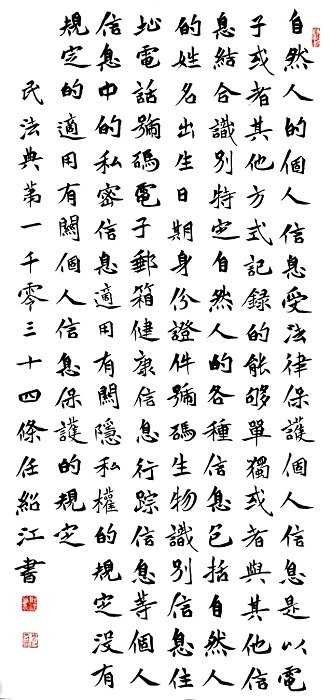 自然人的個人信息受法律保護個人信息是以電
子或者其他方式記録的能够單獨或者與其他信
息結合識别特定自然人的各種信息包括自然人
的姓名出生日期身份證件號碼生物識别信息住
址電話號碼電子郵箱健康信息行踪信息等個人
信息中的私密信息適用有關隱私權的規定没有
規定的適用有關個人信息保護的規定
民法典第一千零三十四條任紹江書